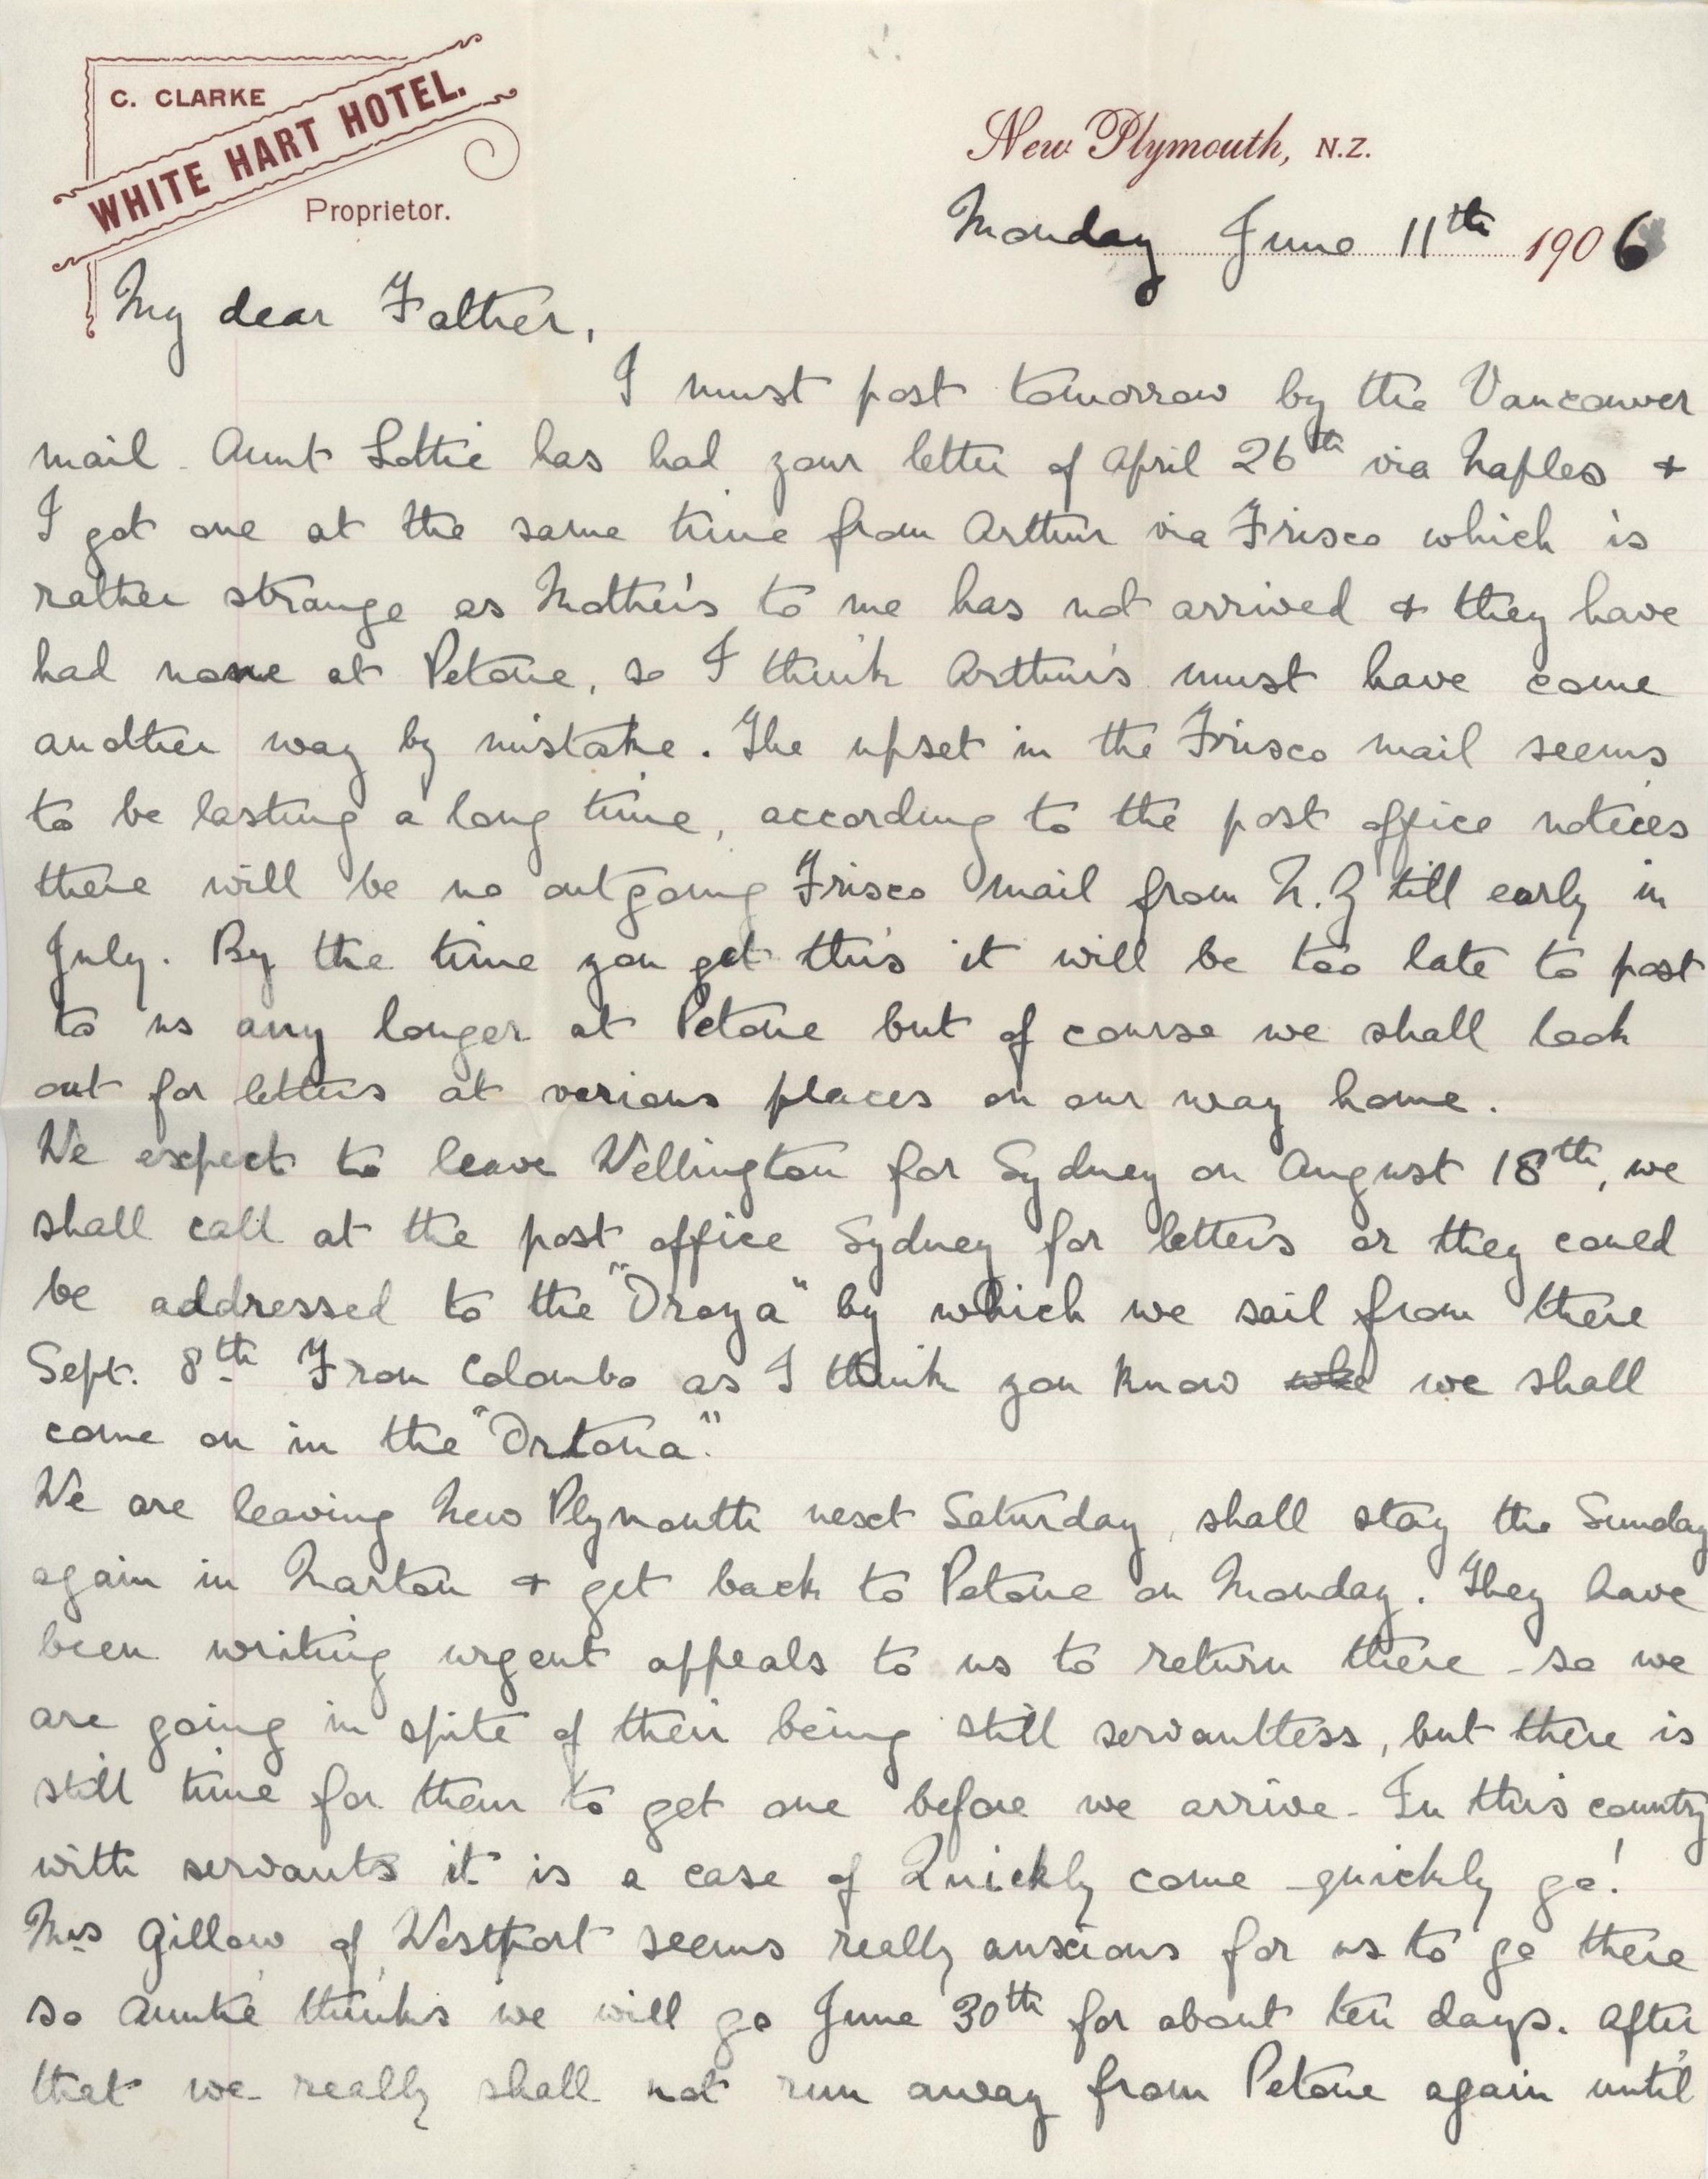 C. CLARKE
WHITE HART HOTEL.
Proprietor.
New Plymouth, N.Z.
Monday June 11th 1906
My dear Father,
I must post tomorrow by the Vancouver
mail. Aunt Lottie has had your letter of April 26th via Naples &
I got one at the same time from Arthur via Frisco which is
rather strange as Mother's to me has not arrived & they have
had none at Petone, so I think Arthur's must have come
another way by mistake. The upset in the Frisco mail seems
to be lasting a long time, according to the post office notices
there will be no outgoing Frisco mail from N.Z till early in
July. By the time you get this it will be too late to post
to us any longer at Petone but of course we shall look
out for letters at various places on our way home.
We expect to leave Wellington for Sydney on August 18th, we
shall call at the post office Sydney for letters or they could
be addressed to the "Oroya" by which we sail from there
Sept. 8th From Colombo as I think you know we shall
come on in the "Ortona".
We are leaving New Plymouth next Saturday, shall stay the Sunday
again in Marton & get back to Petone on Monday. They have
been writing urgent appeals to us to return there - so we
are going in spite of their being still servantless, but there is
still time for them to get one before we arrive - In this country
with servants it is a case of Quickly come - quickly go!
Mrs Gillow of Westport seems really anxious for us to go there
so Auntie thinks we will go June 30th for about ten days. After
that we really shall not run away from Petone again until